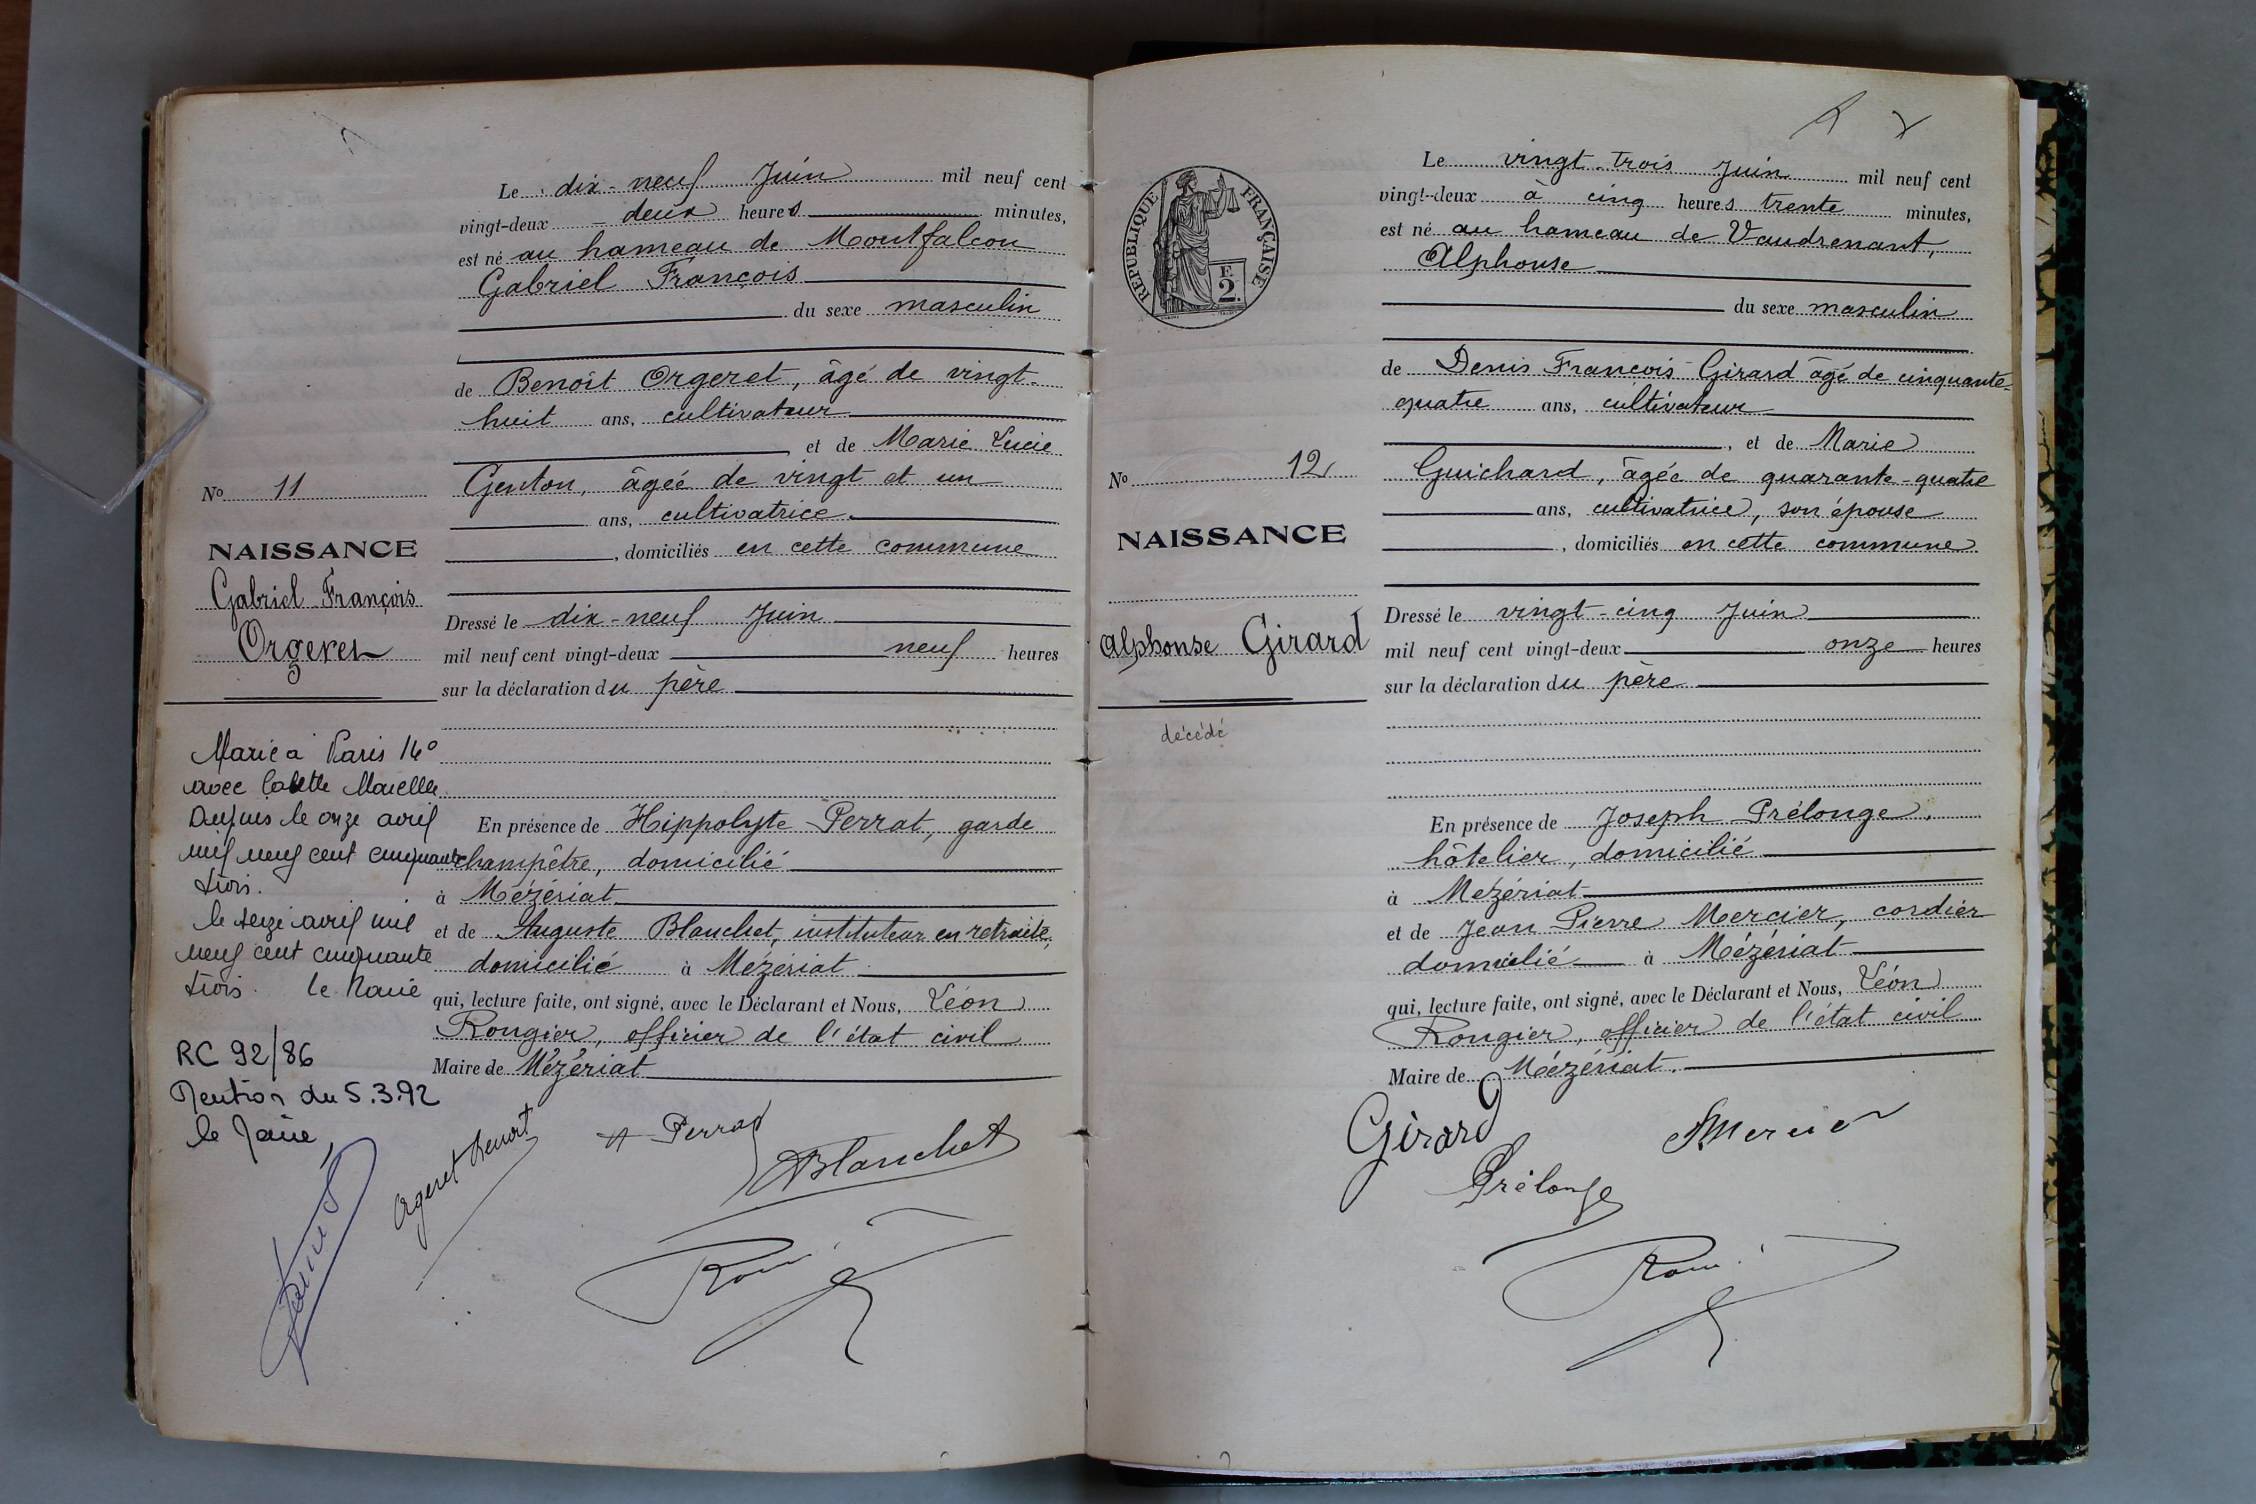 Le dix-neuf Juin mil neuf cent
vingt-deux deux heures minutes,
est né au hameau de Montfalcon
Gabriel François
du sexe masculin
de Benoît Orgeret, âgé de vingt-
huit ans, cultivateur
et de Marie Lucie
Genton, âgée de vingt et un
ans, cultivatrice
, domiciliés en cette commune
Dressé le dix-neuf Juin
mil neuf cent vingt-deux neuf heures
sur la déclaration du père
En présence de Hippolyte Perrat, garde
champêtre, domicilié
à Mézériat
et de Auguste Blanchet, instituteur en retraite,
domicilié à Mézériat
qui, lecture faite, ont signé, avec le Déclarant et Nous, Léon
Rougier, officier de l'état civil
Maire de Mézériat
No 11
NAISSANCE
Gabriel François
Orgeret
Marié à Paris 14e
avec
le onze avril
mil neuf cent cinquante
trois.
le seize avril mil
neuf cent cinquante
trois. le Maire
RC 92/86
Mention du 5.3.92
le Maire,
Orgeret Benoit
H Perrat
ABlanchet
RÉPUBLIQUE FRANÇAISE
F.
2.
Le vingt-trois Juin mil neuf cent
vingt-deux à cinq heures trente minutes,
est né au hameau de Vaudrenant,
Alphonse
du sexe masculin
de Denis François Girard âgé de cinquante-
quatre ans, cultivateur
, et de Marie
Guichard, âgée de quarante-quatre
ans, cultivatrice, son épouse
, domiciliés en cette commune
Dressé le vingt-cinq Juin
mil neuf cent vingt-deux onze heures
sur la déclaration du père
En présence de Joseph Prélonge,
hôtelier, domicilié
à Mézériat
et de Jean Pierre Mercier, cordier
domicilié à Mézériat
qui, lecture faite, ont signé, avec le Déclarant et Nous, Léon
Rougier, officier de l'état civil
Maire de Mézériat.
No 12
NAISSANCE
Alphonse Girard
décédé
Girard
Mercier
Prélonge